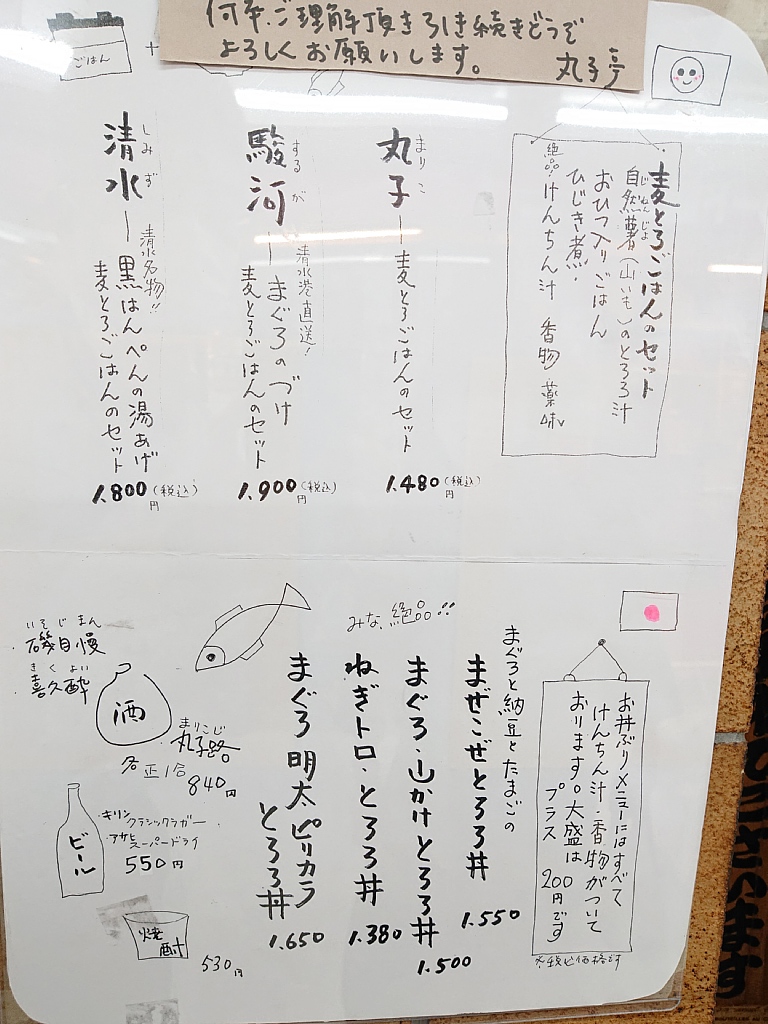 何卒ご理解頂き引き続きどうぞ
よろしくお願いします。
丸子亭
ごはん
+
麦とろごはんのセット
自然薯(山いも)のとろろ汁
じねんじょ
おひつ入りごはん
ひじき煮・
絶品けんちん汁 香物 薬味
丸子ー麦とろごはんのセット
まりこ
1.480円(税込)
駿河ーまぐろのづけ
するが
清水港直送!
麦とろごはんのセット
1.900円(税込)
清水ー黒はんぺんの湯あげ
しみず
清水名物!!
麦とろごはんのセット
1.800円(税込)
お丼ぶりメニューにはすべて
けんちん汁・香物がついて
おります。大盛は
プラス 200円です
※税込価格です
みな、絶品!!
まぐろと納豆とたまごの
まぜこぜとろろ丼
1.550
まぐろ・山かけとろろ丼
1.500
ねぎトロ・とろろ丼
1.380
まぐろ 明太ピリカラ
とろろ丼
1.650
いそじまん
磯自慢
きくよい
喜久酔
酒
まりこじ
丸子路
各正1合
840円
ビール
・キリンクラシックラガー
・アサヒスーパードライ
550円
焼酎
530円
ございます